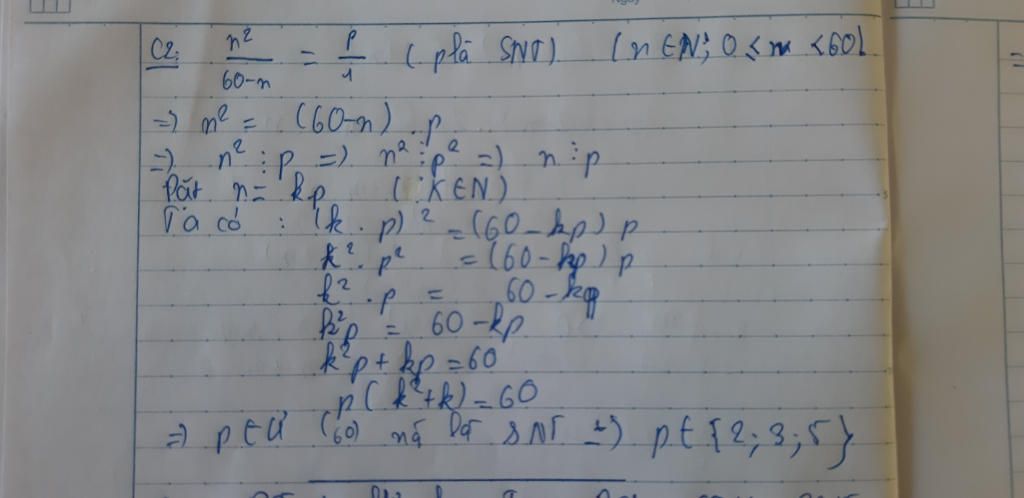 C2: n²/60-n = p/1 (p là SNT) (n ∈ N; 0 ≤ n < 60)
=> n² = (60-n) . p
=> n² ⋮ p => n² ⋮ p² => n ⋮ p
Đặt n = kp (K ∈ N)
Ta có : (k . p)² = (60 - kp) p
k² . p² = (60 - kp) p
k² . p = 60 - kp
k²p = 60 - kp
k²p + kp = 60
p( k²+k) = 60
=> p ∈ Ư (60) mà SNT => p ∈ {2; 3; 5}